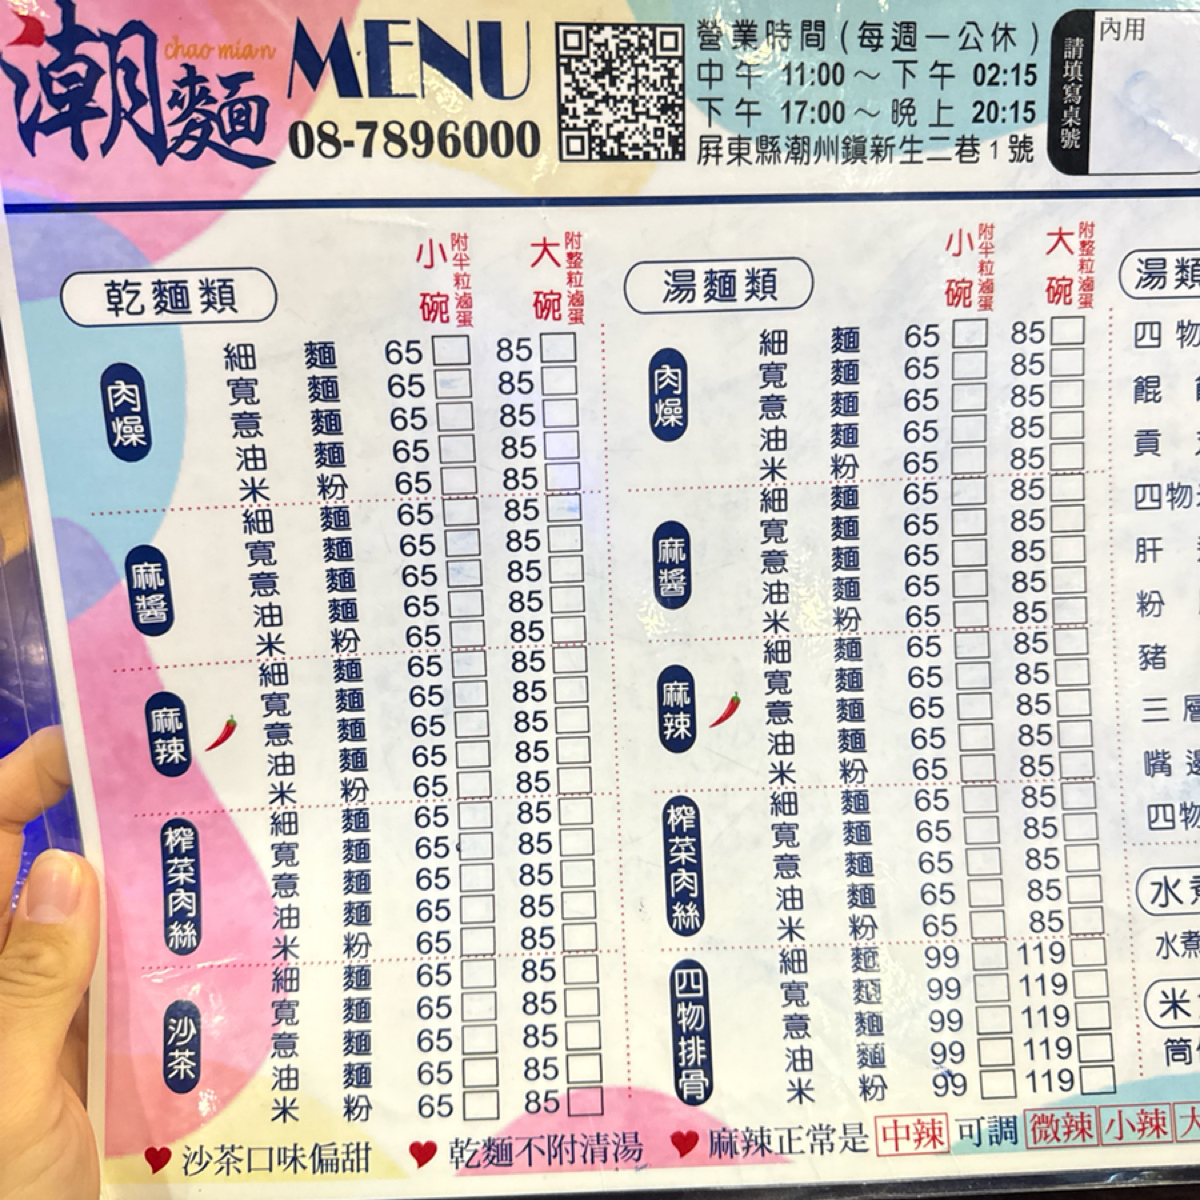 潮麵
chao mian
MENU
08-7896000
營業時間(每週一公休)
中午 11:00～下午 02:15
下午 17:00～晚上 20:15
屏東縣潮州鎮新生二巷1號
請填寫桌號
內用
乾麵類
小碗 附半粒滷蛋
大碗 附整粒滷蛋
肉燥
細麵 65 85
寬麵 65 85
意麵 65 85
油麵 65 85
米粉 65 85
麻醬
細麵 65 85
寬麵 65 85
意麵 65 85
油麵 65 85
米粉 65 85
麻辣
細麵 65 85
寬麵 65 85
意麵 65 85
油麵 65 85
米粉 65 85
榨菜肉絲
細麵 65 85
寬麵 65 85
意麵 65 85
油麵 65 85
米粉 65 85
沙茶
細麵 65 85
寬麵 65 85
意麵 65 85
油麵 65 85
米粉 65 85
湯麵類
小碗 附半粒滷蛋
大碗 附整粒滷蛋
肉燥
細麵 65 85
寬麵 65 85
意麵 65 85
油麵 65 85
米粉 65 85
麻醬
細麵 65 85
寬麵 65 85
意麵 65 85
油麵 65 85
米粉 65 85
麻辣
細麵 65 85
寬麵 65 85
意麵 65 85
油麵 65 85
米粉 65 85
榨菜肉絲
細麵 65 85
寬麵 65 85
意麵 65 85
油麵 65 85
米粉 65 85
四物排骨
細麵 99 119
寬麵 99 119
意麵 99 119
油麵 99 119
米粉 99 119
湯類
四物
餛
貢
四物
肝
粉
豬
三層
嘴邊
四物
水煮
水煮
米
筒
沙茶口味偏甜
乾麵不附清湯
麻辣正常是 中辣 可調 微辣 小辣 大